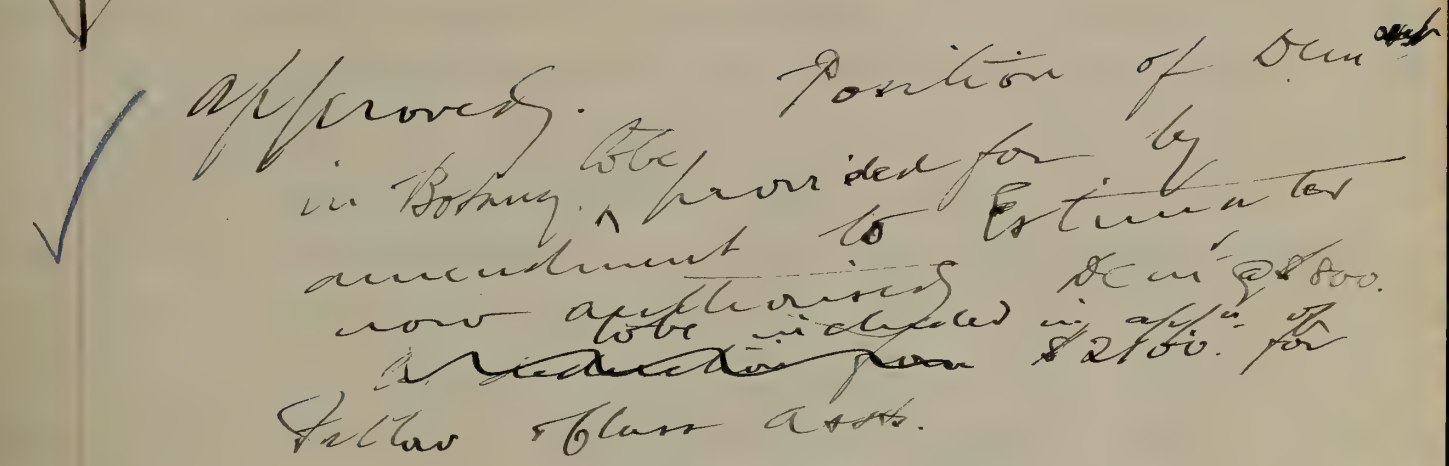 approved. Position of Dem
in Botany. to be provided for by
amendment to Estimates
now authorised Dem @ $800.
to be included in app'n of
$2100. for
Fellow & Class Assts.